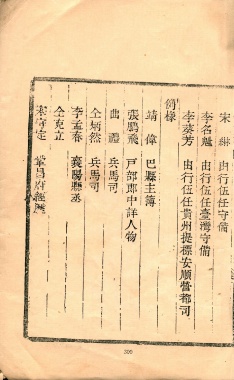 宋紳 由行伍任守備
李名魁 由行伍任臺灣守備
李葵芳 由行伍任貴州提標安順營都司
例樣
靖偉 巴縣主簿
張鵬飛 戶部郎中詳人物
曲禮 兵馬司
仝炳然 兵馬司
李孟春 襄陽縣丞
仝克立
宋守定 鞏昌府經歷